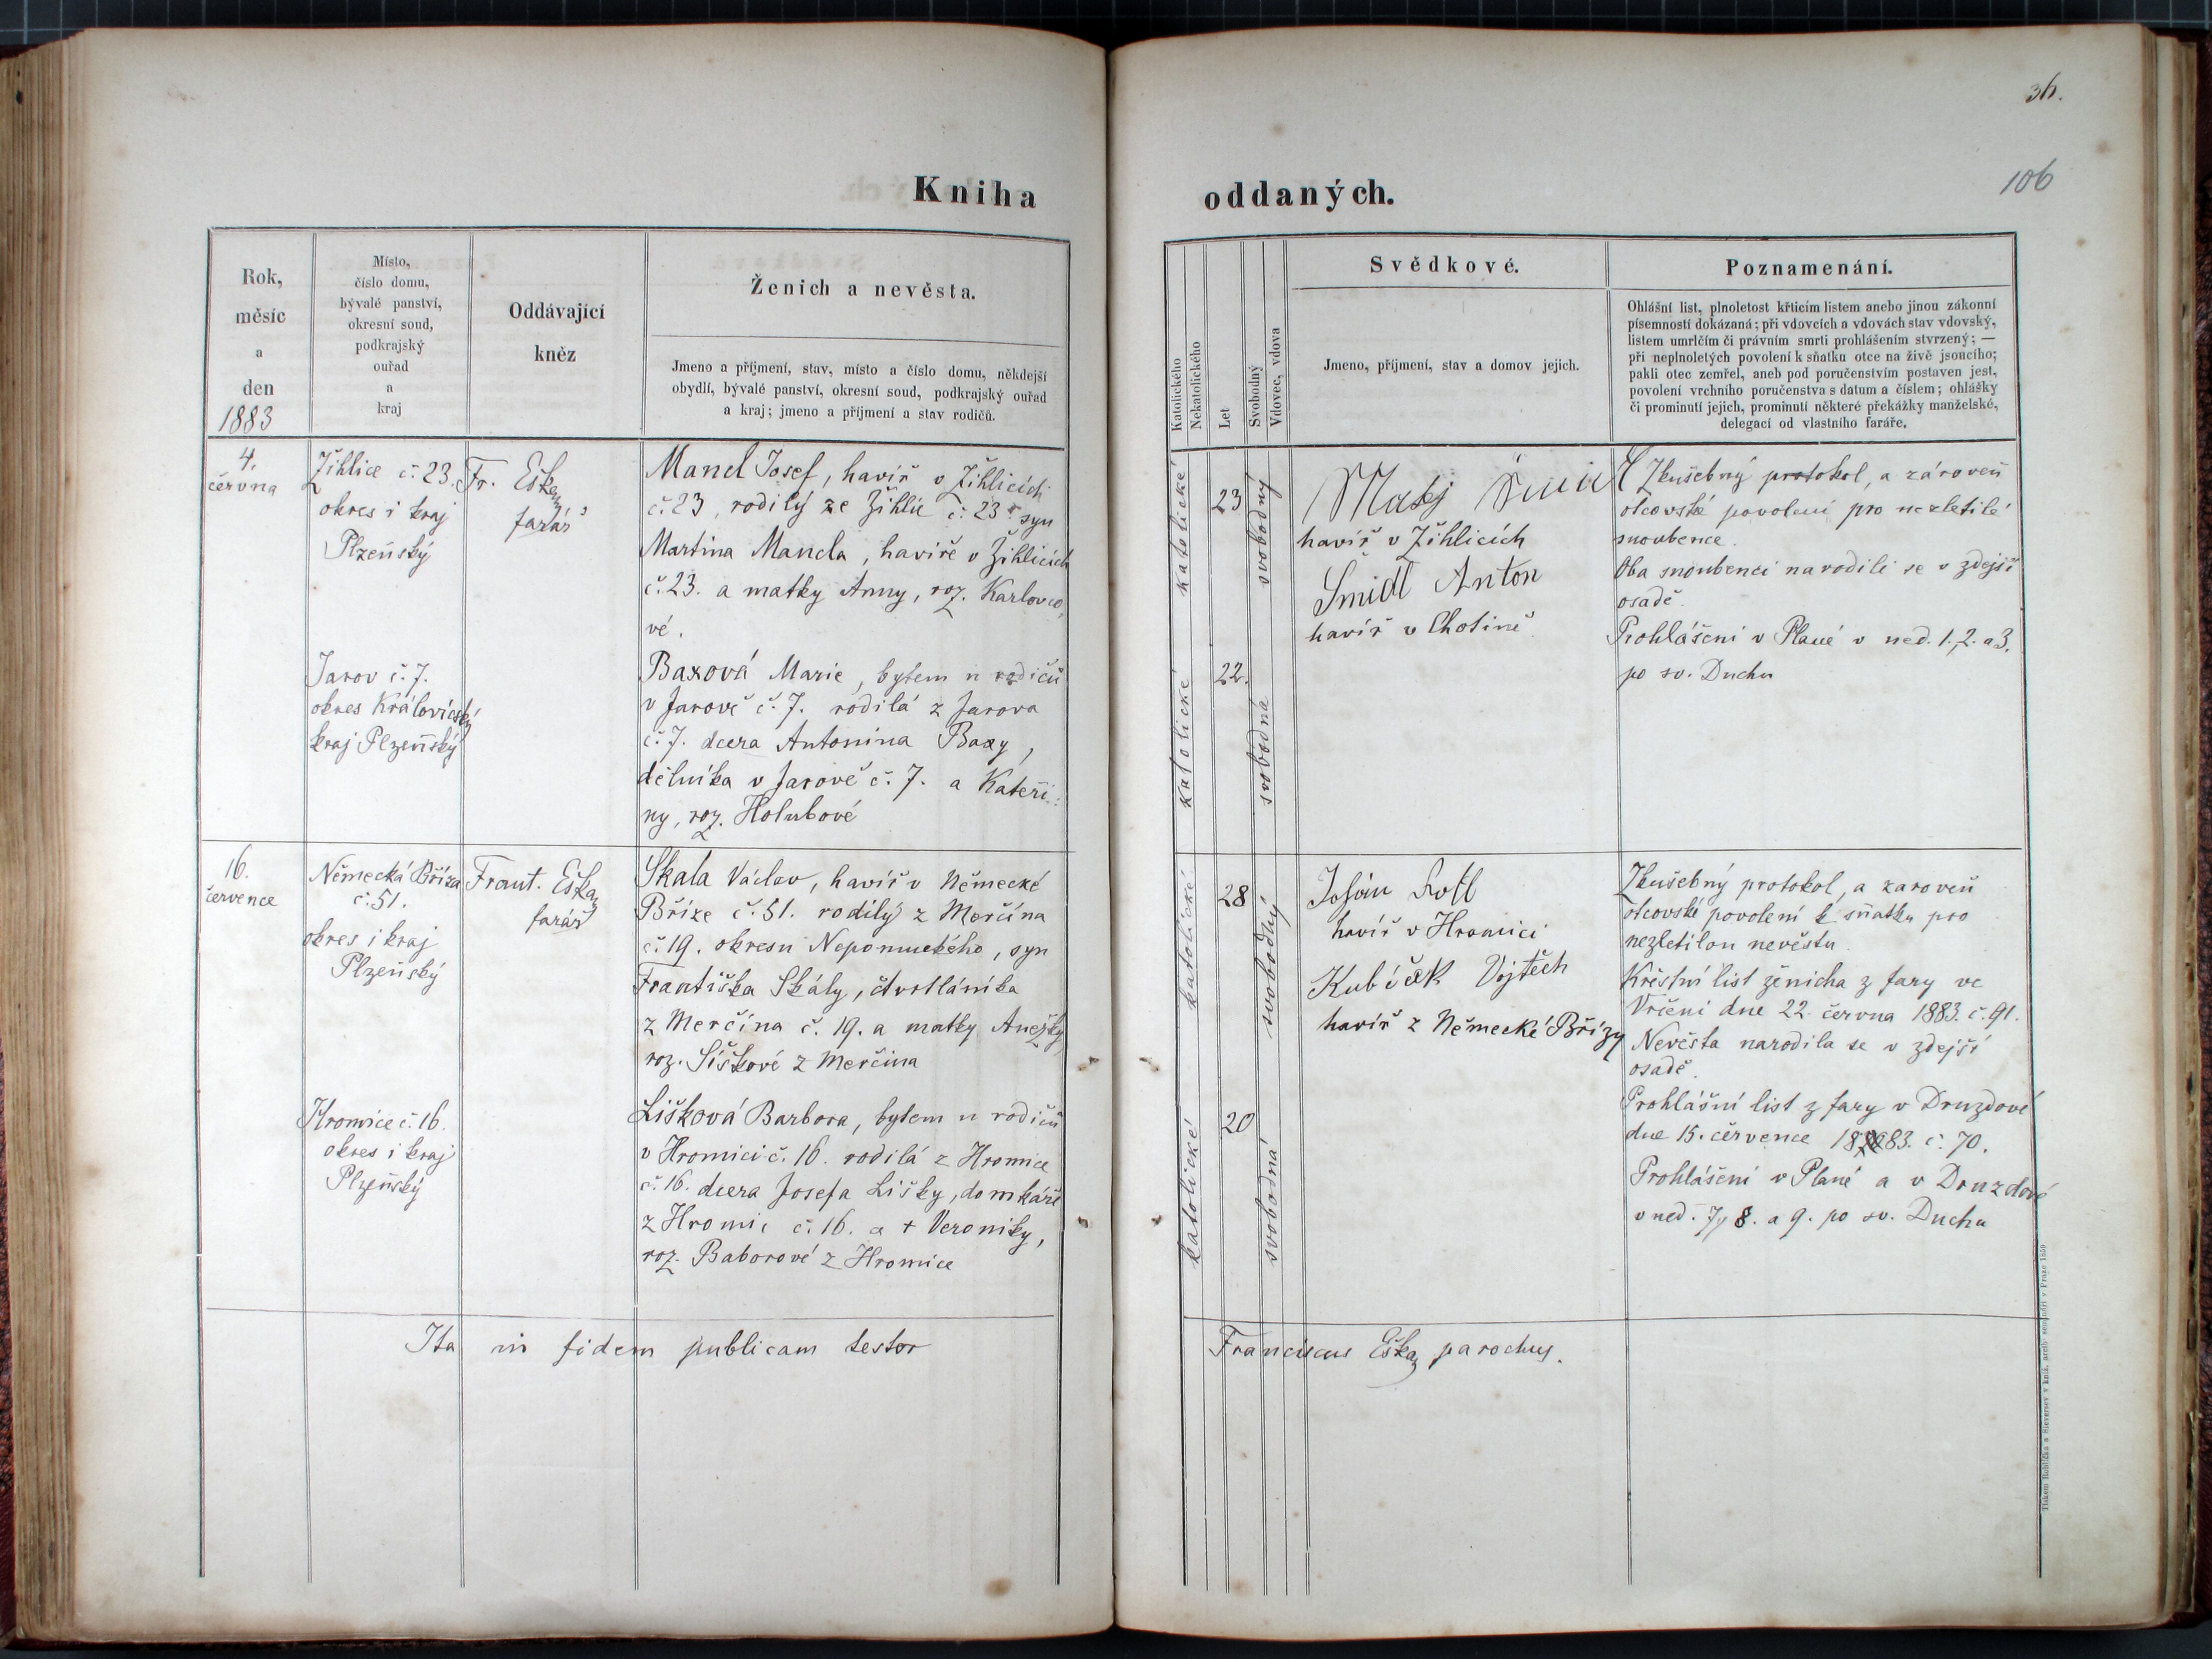 36.
106
Kniha oddaných.
Rok,
měsíc
a
den
1883
Místo,
číslo domu,
bývalé panství,
okresní soud,
podkrajský
ouřad
a
kraj
Oddávající
kněz
Ženich a nevěsta.
Jmeno a příjmení, stav, místo a číslo domu, někdejší
obydlí, bývalé panství, okresní soud, podkrajský ouřad
a kraj; jmeno a příjmení a stav rodičů.
Katolického
Nekatolického
Let
Svobodný
Vdovec, vdova
Svědkové.
Jmeno, příjmení, stav a domov jejich.
Poznamenání.
Ohlášní list, plnoletost křticím listem anebo jinou zákonní
písemností dokázaná; při vdovcích a vdovách stav vdovský,
listem umrlčím či právním smrti prohlášením stvrzený; —
při neplnoletých povolení k sňatku otce na živě jsoucího;
pakli otec zemřel, aneb pod poručenstvím postaven jest,
povolení vrchního poručenstva s datum a číslem; ohlášky
či prominutí jejich, prominutí některé překážky manželské,
delegací od vlastního faráře.
4.
června
Žihlice č. 23.
okres i kraj
Plzeňský
Fr. Eška
farář
Mandl Josef, havíř v Žihlicích
č. 23, rodilý ze Žihlic č. 23. syn
Martina Mandla, havíře v Žihlicích
č. 23. a matky Anny, roz. Karlovco-
vé.
Jarov č. 7.
okres Královický
kraj Plzeňský
Baxová Marie, bytem u rodičů
v Jarově č. 7. rodilá z Jarova
č. 7. dcera Antonína Baxy,
dělníka v Jarově č. 7. a Kateři-
ny, roz. Holubové
katolické
23
svobodný
katolické
22.
svobodná
Matěj
havíř v Žihlicích
Šmidl Anton
havíř v Chotině
Zkušebný protokol, a zároveň
otcovské povolení pro nezletilé
snoubence.
Oba snoubenci narodili se v zdejší
osadě.
Prohlášení v Plané v ned. 1., 2. a 3.
po sv. Duchu
16.
července
Německá Bříza
č. 51.
okres i kraj
Plzeňský
Frant. Eška
farář
Skala Václav, havíř v Německé
Bříze č. 51. rodilý z Merčína
č. 19. okresu Nepomuckého, syn
Františka Skály, čtvrtláníka
z Merčína č. 19. a matky Anežky,
roz. Šíškové z Merčína
Hromice č. 16.
okres i kraj
Plzeňský
Lišková Barbora, bytem u rodičů
v Hromici č. 16. rodilá z Hromice
č. 16. dcera Josefa Lišky, domkáře
z Hromic č. 16. a + Veroniky,
roz. Baborové z Hromice
katolické
28
svobodný
katolické
20
svobodná
havíř v Hromici
Kubíček Vojtěch
havíř z Německé Břízy
Zkušebný protokol, a zaroveň
otcovské povolení k sňatku pro
nezletilou nevěstu
Křestní list ženicha z fary ve
Vrčeni dne 22. června 1883. č. 91.
Nevěsta narodila se v zdejší
osadě.
Prohlášní list z fary v Druzdové
dne 15. července 1883. č. 70.
Prohlášení v Plané a v Druzdové
v ned. 7, 8. a 9. po sv. Duchu
Ita in fidem publicam testor Franciscus Eška parochus.